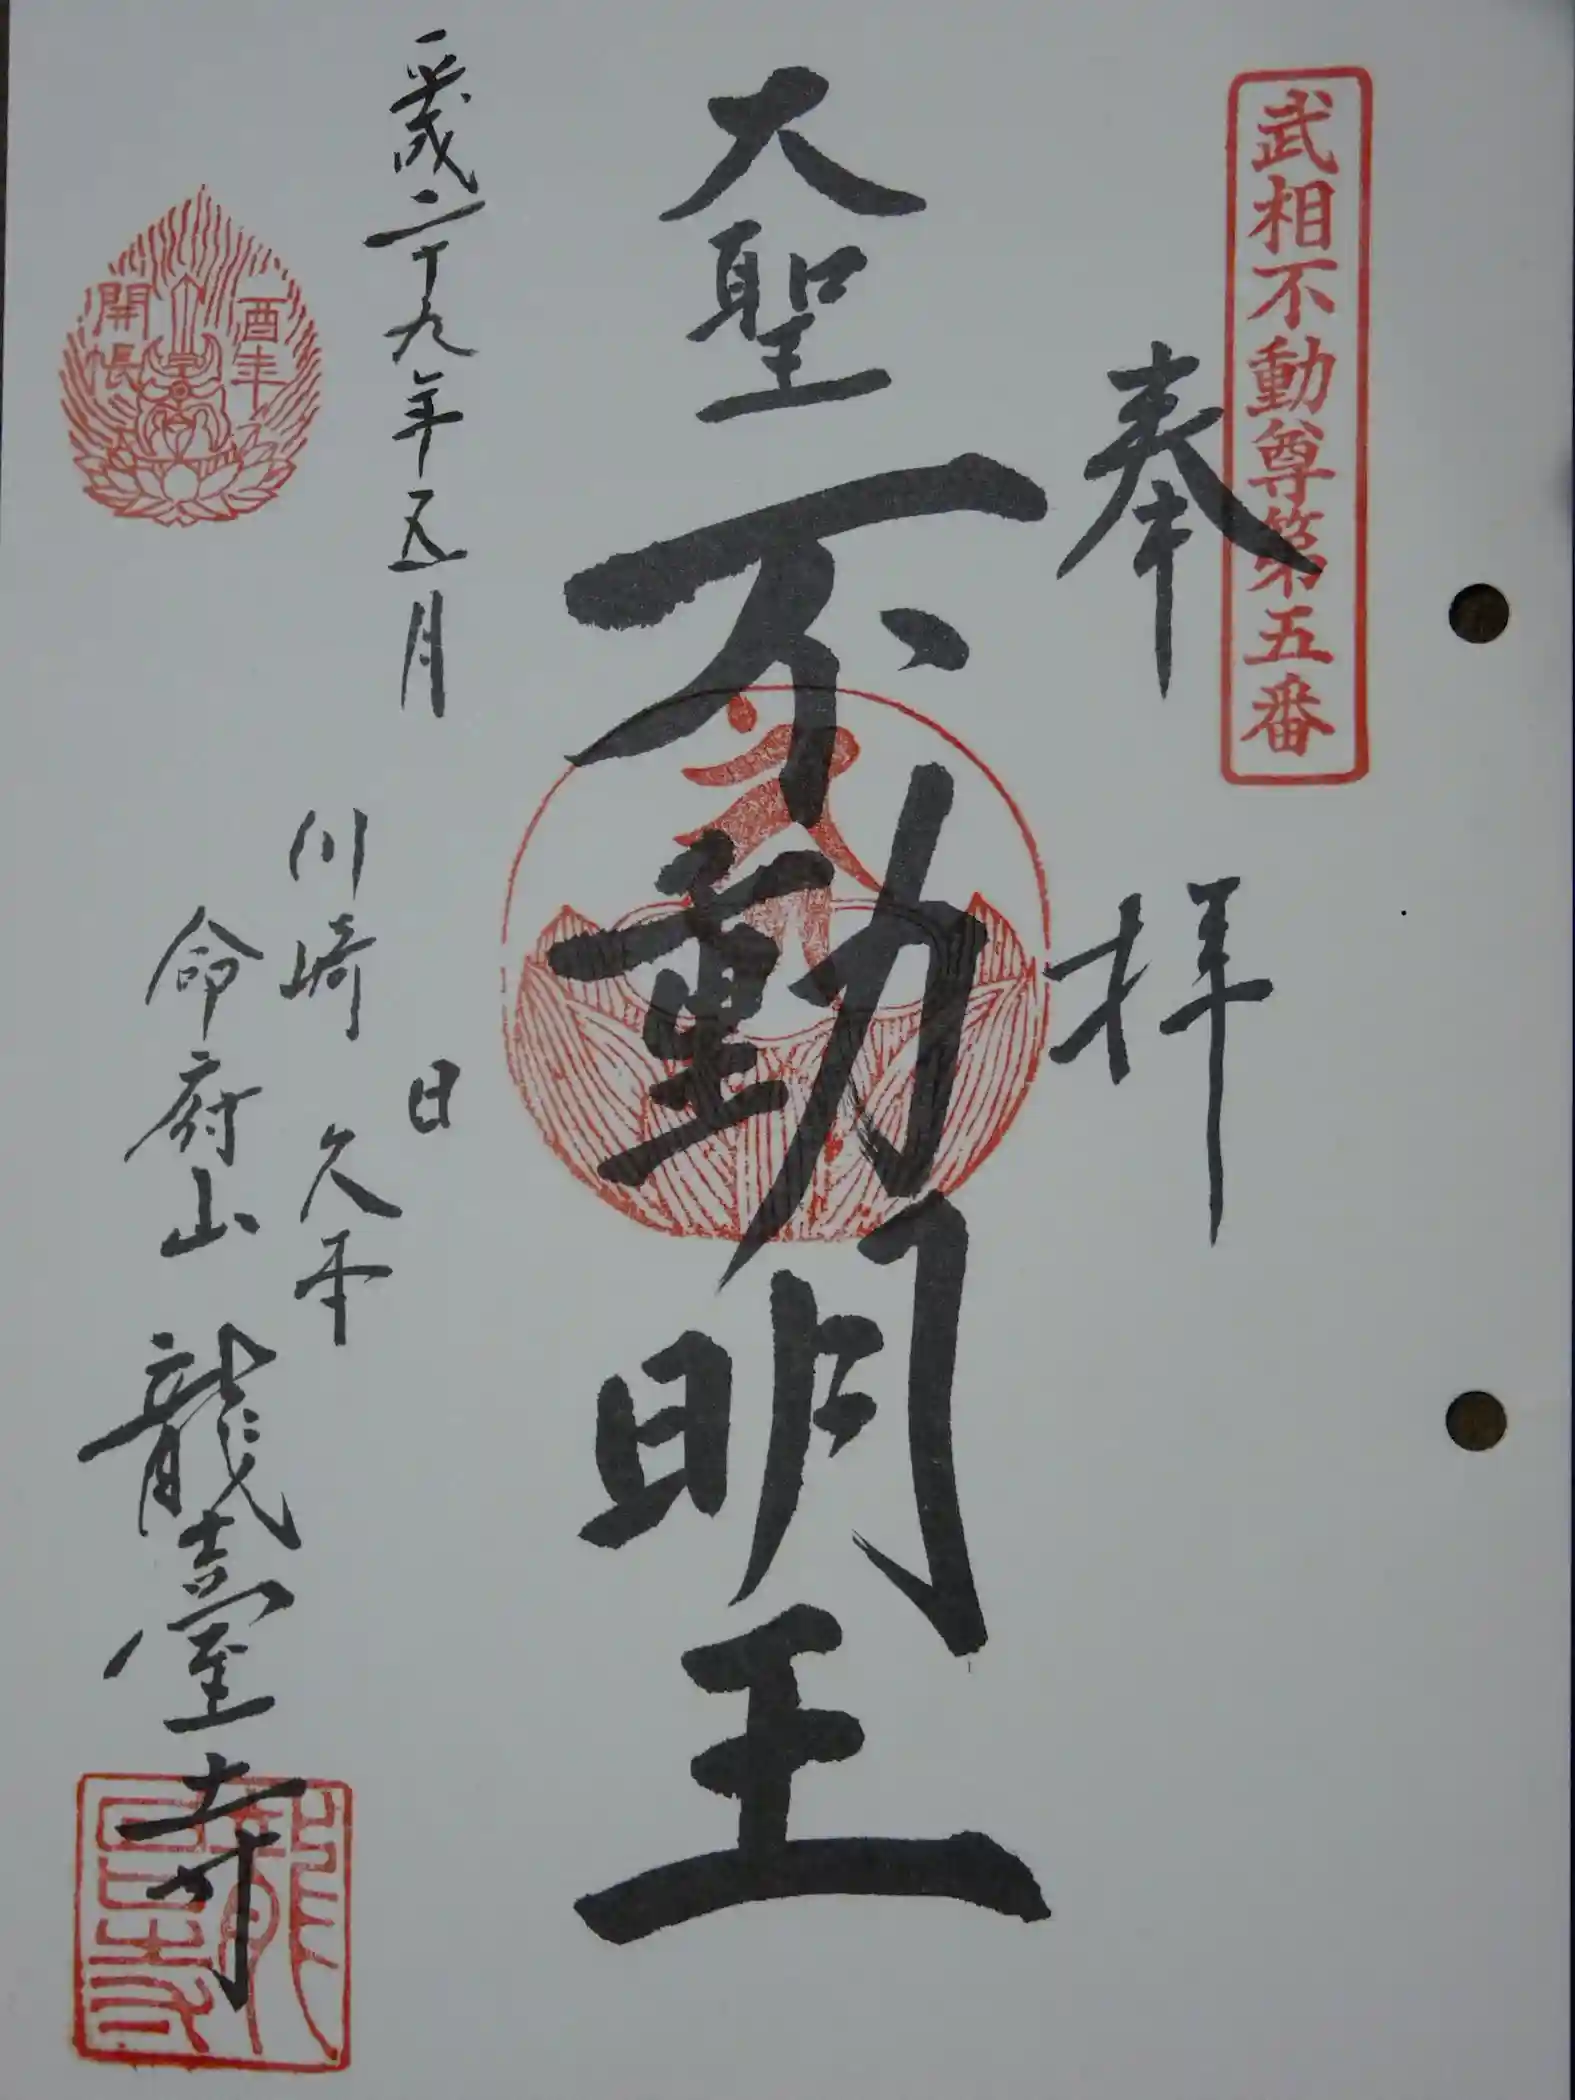 武相不動尊第五番
奉拝
大聖不動明王
平成二十九年五月 日
川崎 久本
命府山 龍臺寺
酉年
開帳